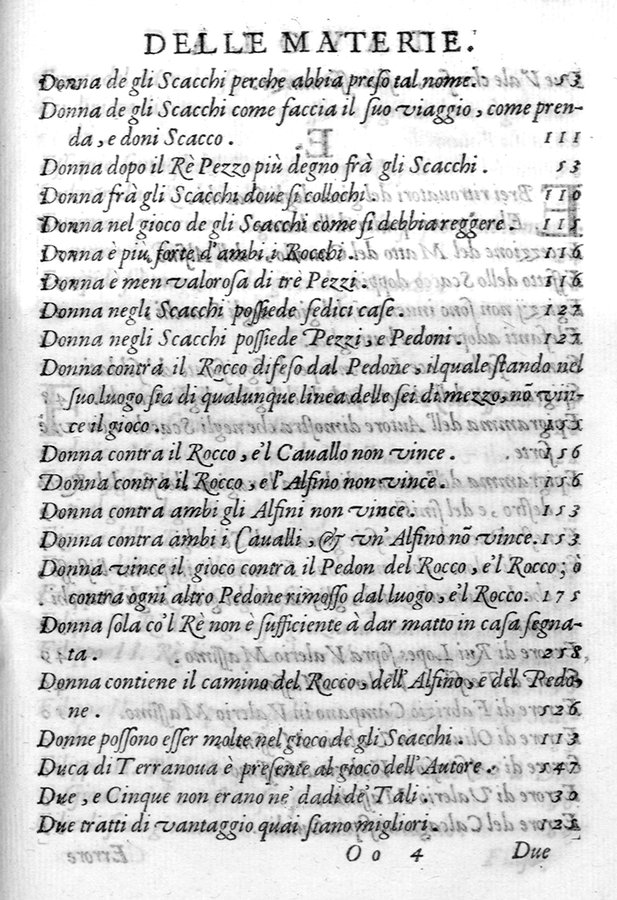 DELLE MATERIE.
Donna de gli Scacchi perche abbia preſo tal nome. 153
Donna de gli Scacchi come faccia il ſuo viaggio, come pren-
da, e doni Scacco. 111
Donna dopo il Rè Pezzo più degno frà gli Scacchi. 53
Donna frà gli Scacchi doue ſi collochi. 110
Donna nel gioco de gli Scacchi come ſi debbia reggere. 115
Donna è più forte d'ambi i Rocchi. 116
Donna e men valoroſa di trè Pezzi. 116
Donna negli Scacchi poſſiede ſedici caſe. 127
Donna negli Scacchi poſſiede Pezzi, e Pedoni. 127
Donna contra il Rocco difeſo dal Pedone, ilquale ſtando nel
ſuo luogo ſia di qualunque linea delle ſei di mezzo, nō vin-
ce il gioco. 155
Donna contra il Rocco, e'l Cauallo non vince. 156
Donna contra il Rocco, e l'Alfino non vince. 156
Donna contra ambi gli Alfini non vince. 153
Donna contra ambi i Caualli, & vn' Alfino nō vince. 153
Donna vince il gioco contra il Pedon del Rocco, e'l Rocco; ò
contra ogni altro Pedone rimoſſo dal luogo, e'l Rocco. 175
Donna ſola co'l Rè non è ſufficiente à dar matto in caſa ſegna-
ta. 258
Donna contiene il camino del Rocco, dell' Alfino, e del Pedo-
ne. 526
Donne poſſono eſſer molte nel gioco de gli Scacchi. 113
Duca di Terranoua è preſente al gioco dell' Autore. 547
Due, e Cinque non erano ne' dadi de' Tali. 30
Due tratti di vantaggio quai ſiano migliori. 121
O o 4 Due